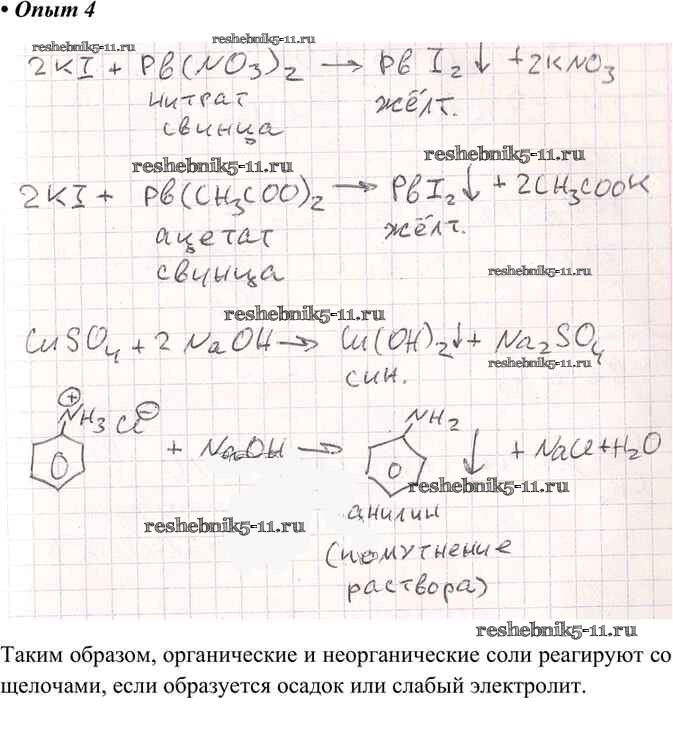 • Опыт 4
reshebnik5-11.ru reshebnik5-11.ru
2KI + Pb(NO3)2 → PbI2↓ + 2KNO3
нитрат жёлт.
свинца
reshebnik5-11.ru reshebnik5-11.ru
2KI + Pb(CH3COO)2 → PbI2↓ + 2CH3COOK
ацетат жёлт.
свинца reshebnik5-11.ru
reshebnik5-11.ru
CuSO4 + 2NaOH → Cu(OH)2↓ + Na2SO4
син. reshebnik5-11.ru
⊕NH3 Cl⊖ + NaOH → NH2 ↓ + NaCl + H2O
reshebnik5-11.ru
анилин
reshebnik5-11.ru
(помутнение
раствора)
reshebnik5-11.ru
Таким образом, органические и неорганические соли реагируют со
щелочами, если образуется осадок или слабый электролит.